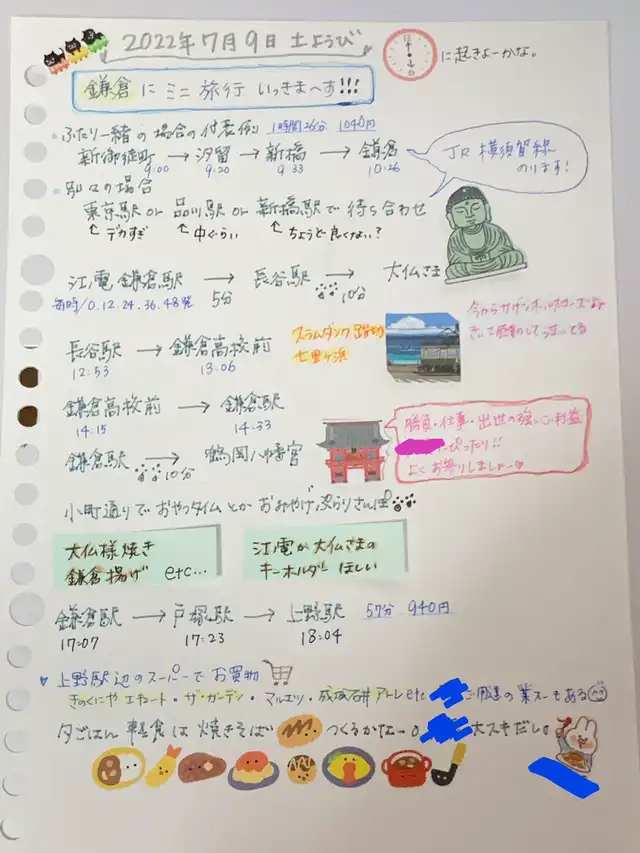 2022年7月9日 土ようび
に起きよーかな。
鎌倉に ミニ旅行 いってきまーす!!!
ふたり一緒の場合の付表例 1時間26分 1040円
新御徒町 → 汐留 → 新橋 → 鎌倉
9:00 9:20 9:33 10:26
JR横須賀線
のります!
別々の場合
東京駅 or 品川駅 or 新橋駅で 待ち合わせ
↑デカすぎ ↑中ぐらい ↑ちょうど良くない?
江ノ電 鎌倉駅 → 長谷駅 → 大仏さま
毎時/0.12.24.36.48発 5分 10分
長谷駅 → 鎌倉高校前
12:53 13:06
スラムダンク 踏切
七里ヶ浜
鎌倉高校前 → 鎌倉駅
14:15 14:33
鎌倉駅 → 鶴岡八幡宮
10分
勝負・仕事・出世の強いご利益
ぴったり!!
よくお参りしましょ〜
小町通りで おやつタイム とか おみやげ ぶらりさんぽ
大仏様焼き
鎌倉揚げ etc...
江ノ電か大仏さまの
キーホルダー ほしい
鎌倉駅 → 戸塚駅 → 上野駅 57分 940円
17:07 17:23 18:04
上野駅辺のスーパーで お買物
きのくにや エキュート・ザ・ガーデン・マルエツ・成城石井 アトレ etc ご用達の業スーもある
夕ごはん 軽食は 焼きそば つくるかなー。 大スキだし。